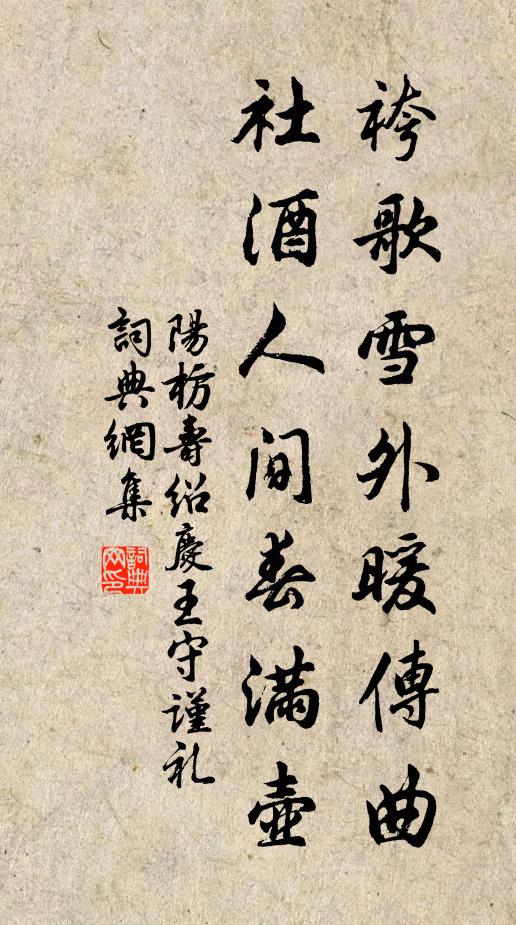 袴歌雪外暖傳曲
社酒人間春滿壺
陽枋壽紹慶王守謹礼
詞典網集
詞典網印